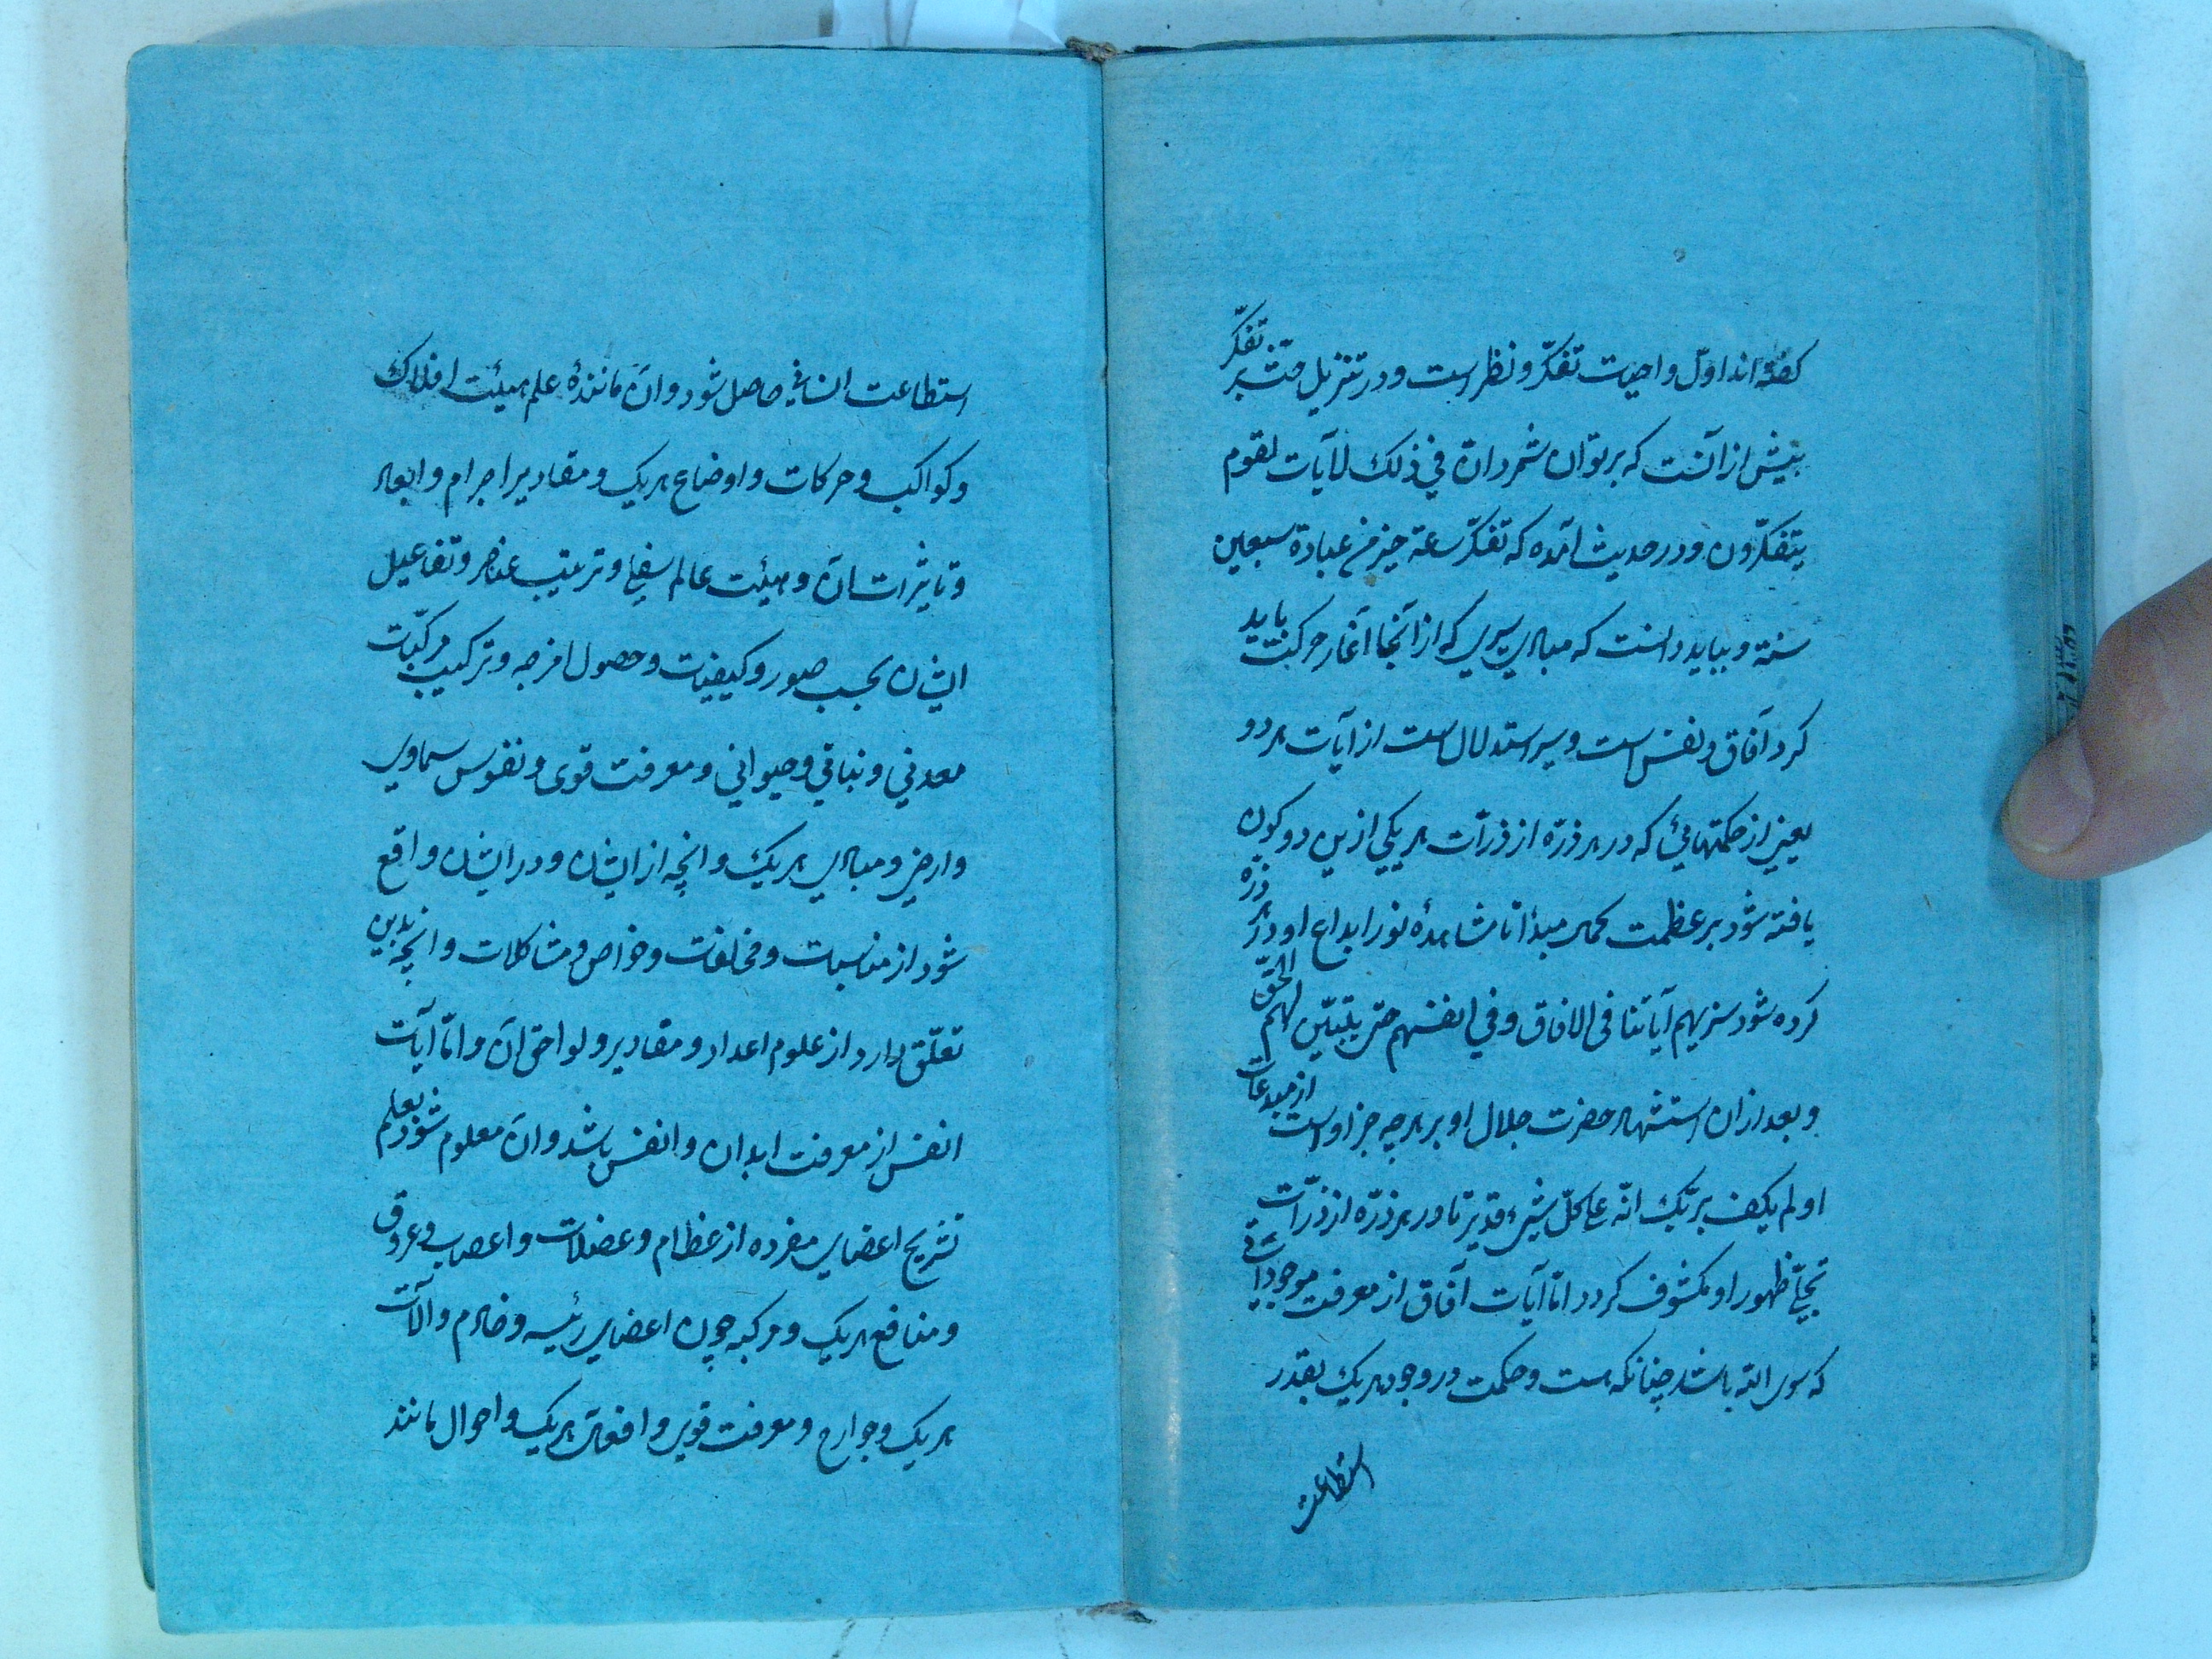 گفته‌اند اوّل واجبات تفکّر و نظر است و در تنزیل حثّ بر تفکّر
بیش از آنست که بر توان شمرد ان في ذلك لآيات لقوم
يتفكّرون و در حدیث آمده که تفکّر ساعة خیر من عبادة سبعین
سنة و بباید دانست که مبادی سیری که از آنجا آغاز حرکت باید
کرد آفاق و انفس است و سیر استدلال است از آیات هر دو
یعنی از حکمتهائی که در هر ذرّه از ذرّات هر یکی از این دو کون
یافته شود بر عظمت کمال مبدأ تا مشاهدهٔ نور ابداع او در هر ذرّه
کرده شود سنريهم آياتنا فى الافاق وفي انفسهم حتى يتبيّن لهم الحقّ
و بعد از ان استشهاد حضرت جلال او بر هرچه جز اوست از مبدعات
اولم يكف بربّك انّه على كلّ شيء قدير تا در هر ذرّه از ذرّات
تجلّی ظهور او مکشوف گردد امّا آیات آفاق از معرفت موجوداتی
که سوی الله باشد چنانکه هست و حکمت در وجود هر یک بقدر
استطاعت
استطاعت انسانی حاصل شود و ان مانندهٔ علم هیئت افلاک
و کواکب و حرکات و اوضاع هر یک و مقادیر اجرام و ابعاد
و تاثیرات ان و هیئت عالم سفلی و ترتیب عناصر و تفاعیل
ایشان بحسب صور و کیفیات و حصول امزجه و ترکیب مرکّبات
معدني و نباتي و حیواني و معرفت قوی و نفوس سماوی
و ارضی و مبادی هر یک و انچه از ایشان و در ایشان واقع
شود از مناسبات و مخالفات و خواص و مشاکلات و انچه بدین
تعلّق دارد از علوم اعداد و مقادیر و لواحق ان و امّا آیات
انفس از معرفت ابدان و انفس باشد و ان معلوم شود بعلم
تشریح اعضای مفرده از عظام و عضلات و اعصاب و عروق
و منافع هر یک و مرکبه چون اعضای رئیسه و خادم و آلات
هر یک و جوارح و معرفت قوی و افعال هر یک و احوال مانند